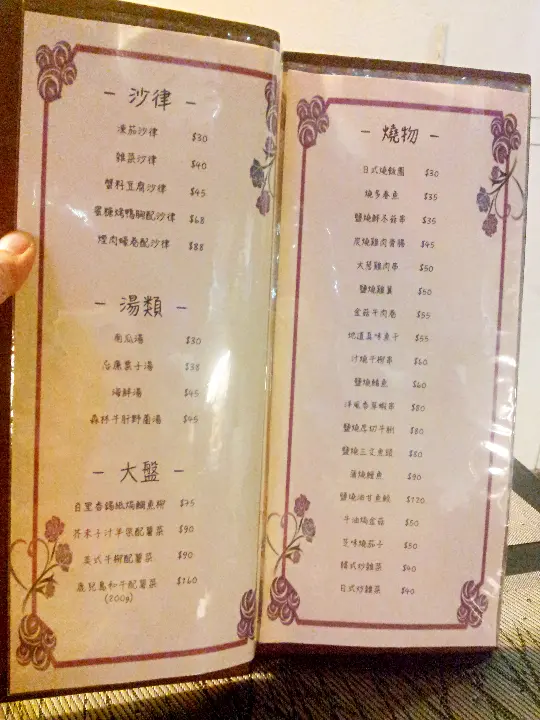 - 沙律 -
凍茄沙律 $30
雜菜沙律 $40
蟹料豆腐沙律 $45
蜜糖烤鴨胸配沙律 $68
煙肉蠔卷配沙律 $88
- 湯類 -
南瓜湯 $30
栗子湯 $38
海鮮湯 $45
森林牛肝野菌湯 $45
- 大盤 -
百里香錫紙焗鯛魚柳 $75
芥末子汁羊扒配薯菜 $90
美式牛柳配薯菜 $90
鹿兒島和牛配薯菜 $160
(200g)
- 燒物 -
日式燒飯團 $30
燒多春魚 $35
鹽燒鮮冬菇串 $35
炭燒雞肉青腸 $45
大葱雞肉串 $50
鹽燒雞翼 $50
金菇牛肉卷 $55
地道真味魚干 $55
汁燒牛柳串 $60
鹽燒鯖魚 $60
洋風香草蝦串 $80
鹽燒厚切牛脷 $80
鹽燒三文魚頭 $80
蒲燒鰻魚 $90
鹽燒油甘魚鮫 $120
牛油焗金菇 $50
芝味燒茄子 $50
韓式炒雜菜 $40
日式炒雜菜 $40